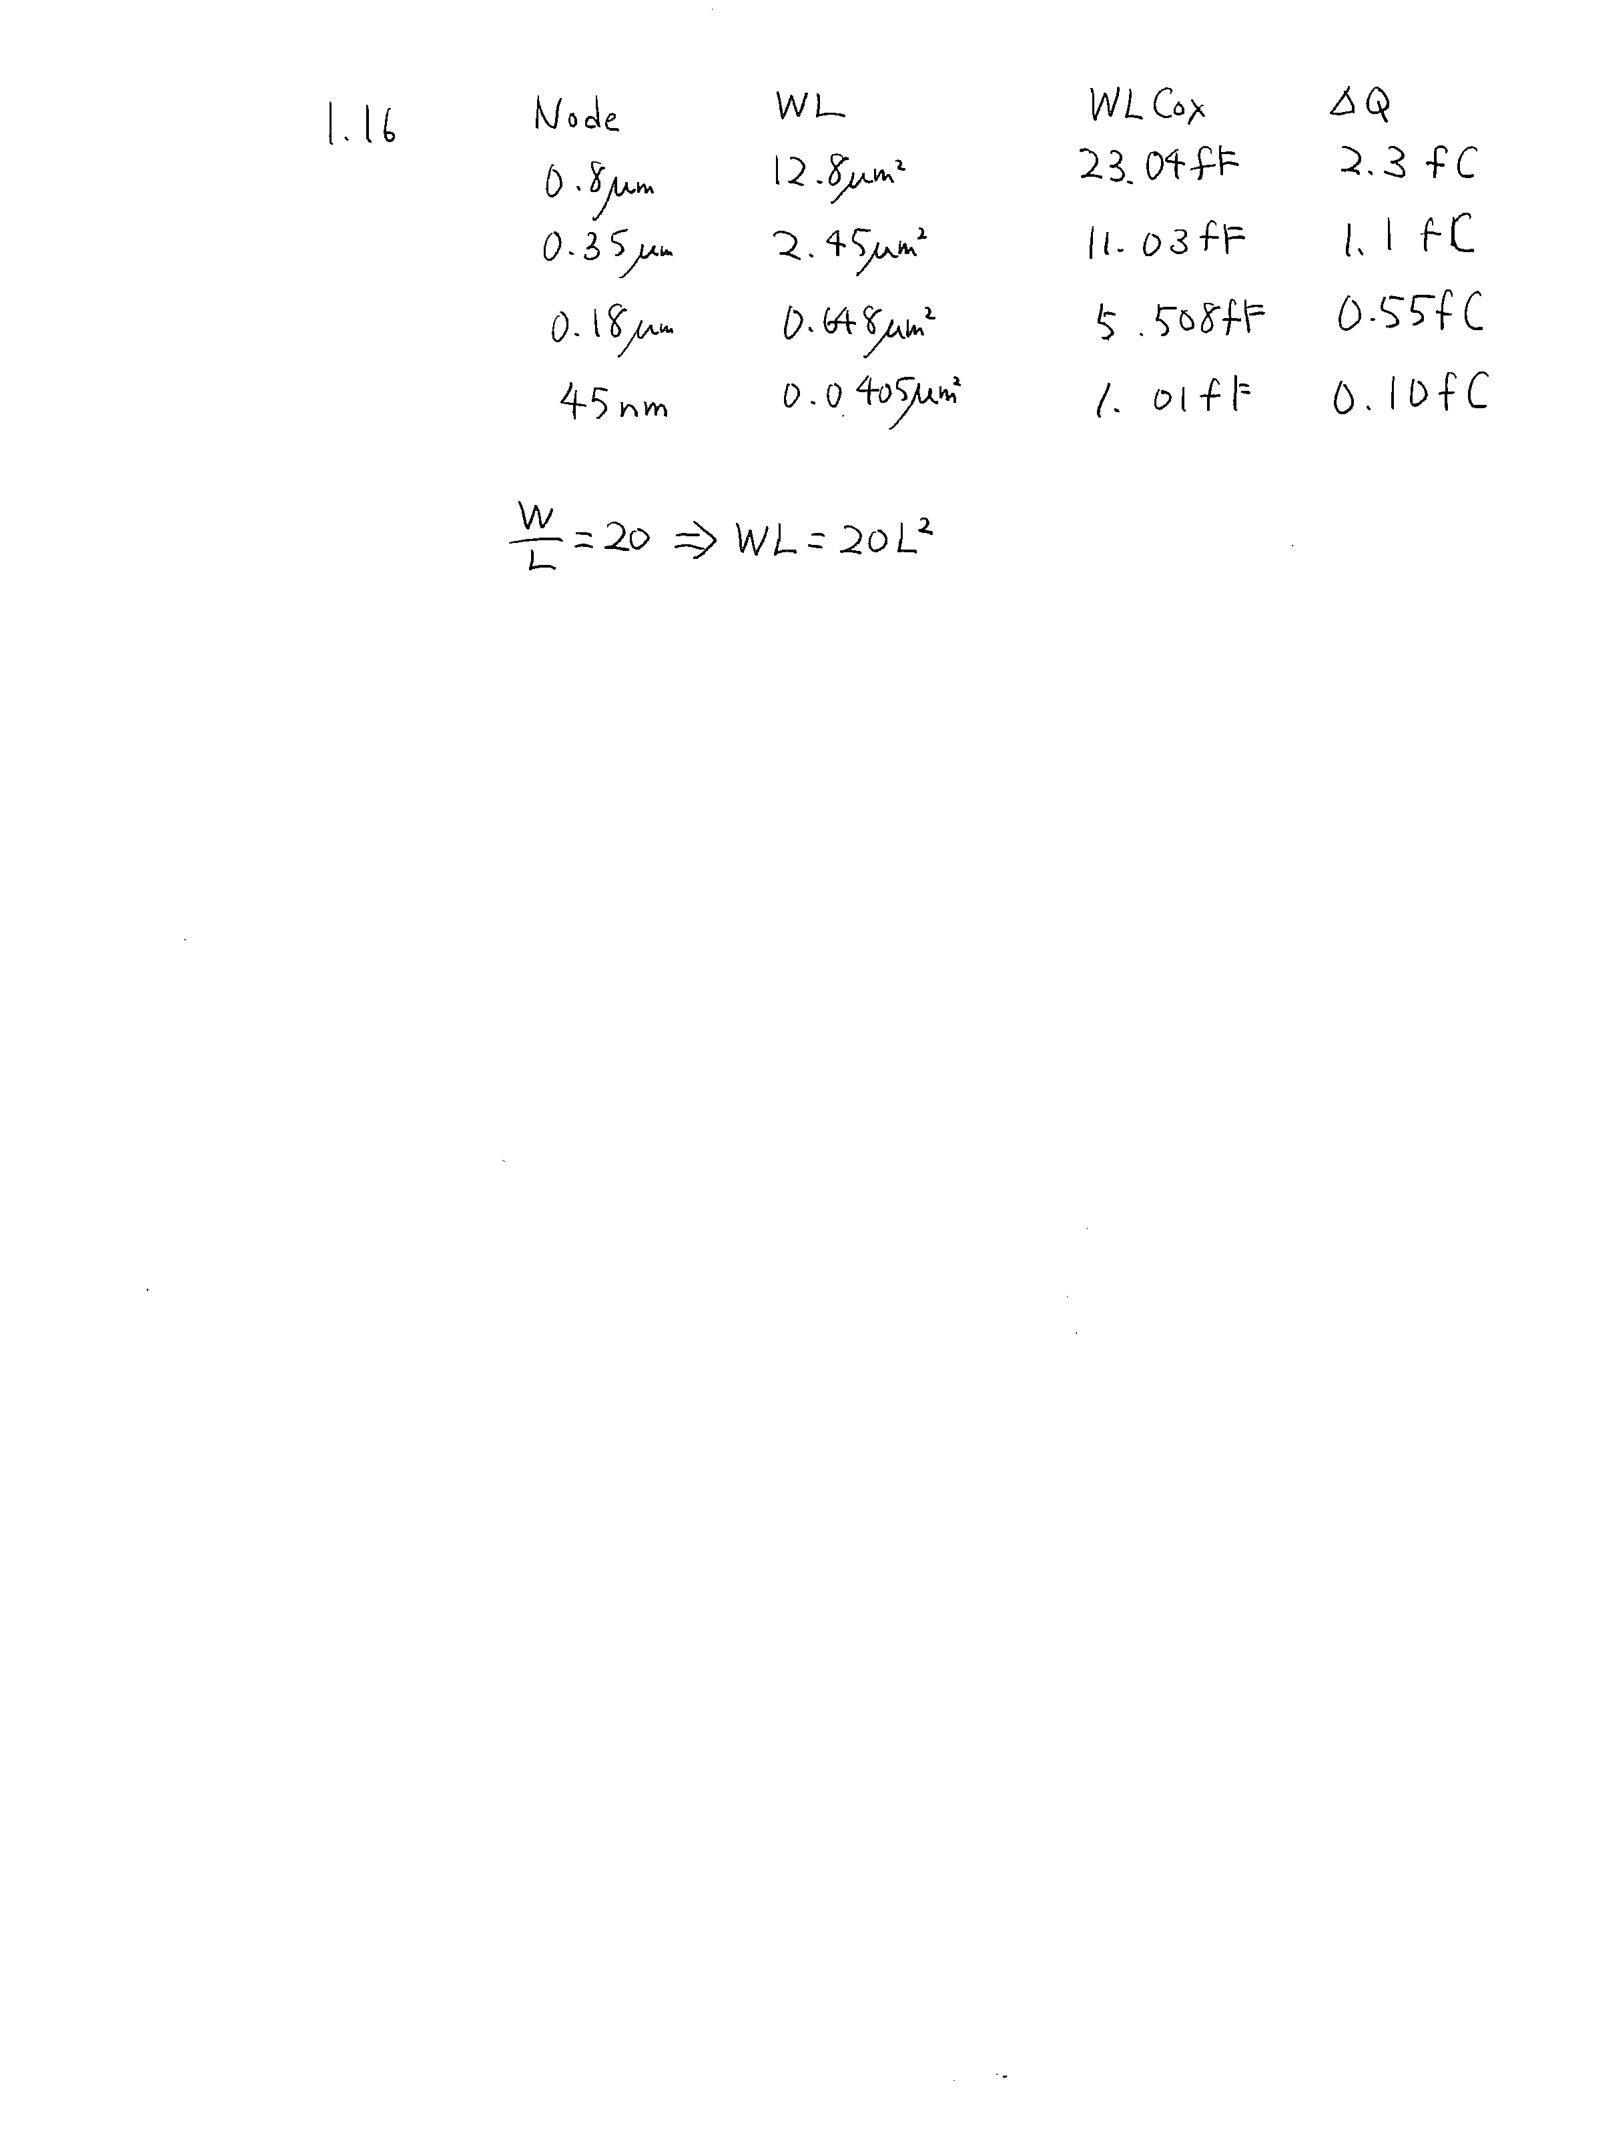 1.16 Node WL WLCox ΔQ
0.8μm 12.8μm² 23.04fF 2.3 fC
0.35μm 2.45μm² 11.03fF 1.1 fC
0.18μm 0.648μm² 5.508fF 0.55fC
45nm 0.0405μm² 1.01fF 0.10fC
W/L = 20 ⇒ WL = 20L²